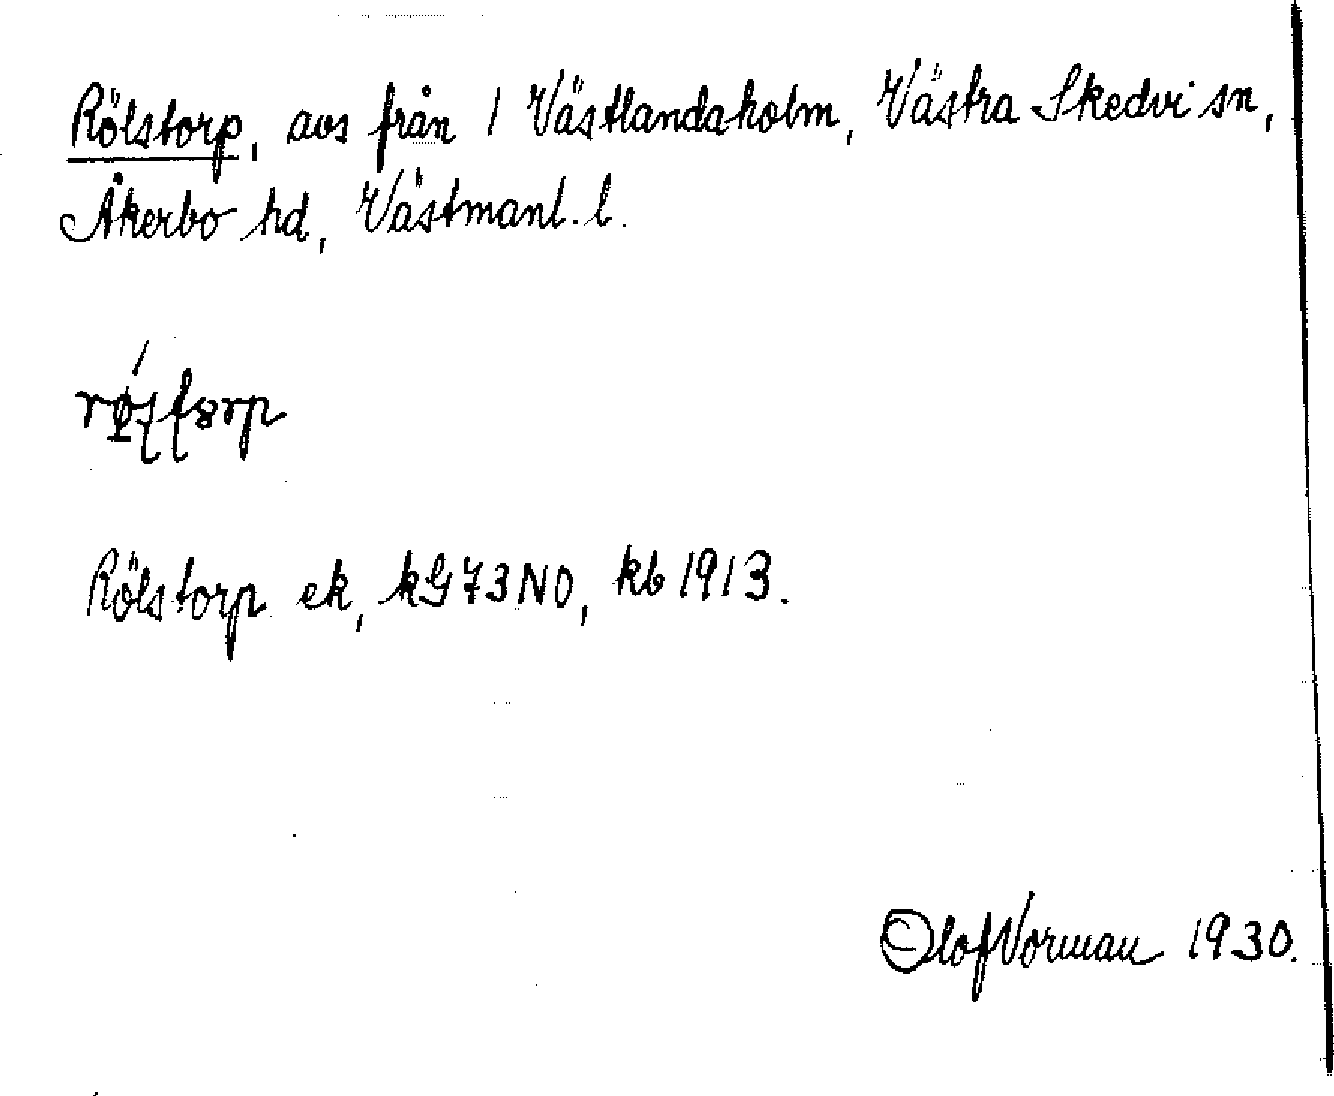 Rölstorp, avs från 1 Västlandaholm, Västra Skedvi sn,
Åkerbo hd, Västmanl. l.
Rölstorp ek, kG73NO, kb 1913.
Olof Vorman 1930.